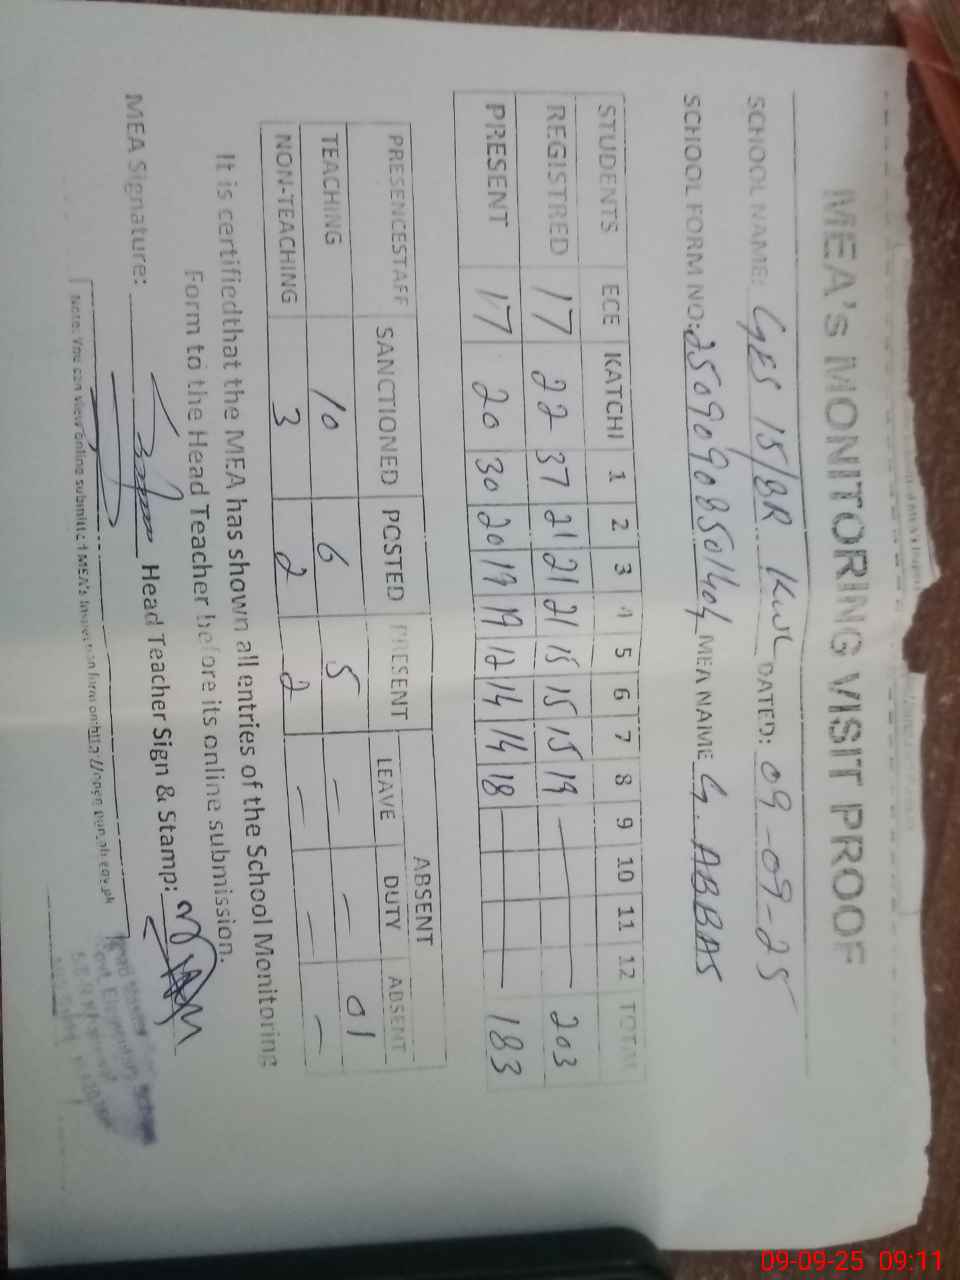 MEA's MONITORING VISIT PROOF
SCHOOL NAME: GES 15/8R KWL DATED: 09-09-25
SCHOOL FORM NO: 25090908501404 MEA NAME G. ABBAS
STUDENTS ECE KATCHI 1 2 3 4 5 6 7 8 9 10 11 12 TOTAL
REGISTRED 17 22 37 21 21 21 15 15 15 19 — 203
PRESENT 17 20 30 20 19 19 12 14 14 18 — 183
ABSENT
PRESENCESTAFF SANCTIONED POSTED PRESENT LEAVE DUTY ABSENT
TEACHING 10 6 5 – – 01
NON-TEACHING 3 2 2 – – –
It is certifiedthat the MEA has shown all entries of the School Monitoring
Form to the Head Teacher before its online submission.
MEA Signature: Head Teacher Sign & Stamp:
Note: You can view online submitted MEA's Inspection form on:
09-09-25 09:11